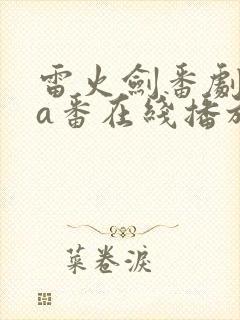 雷火劍番劇
a番在綫播放
菜卷淚